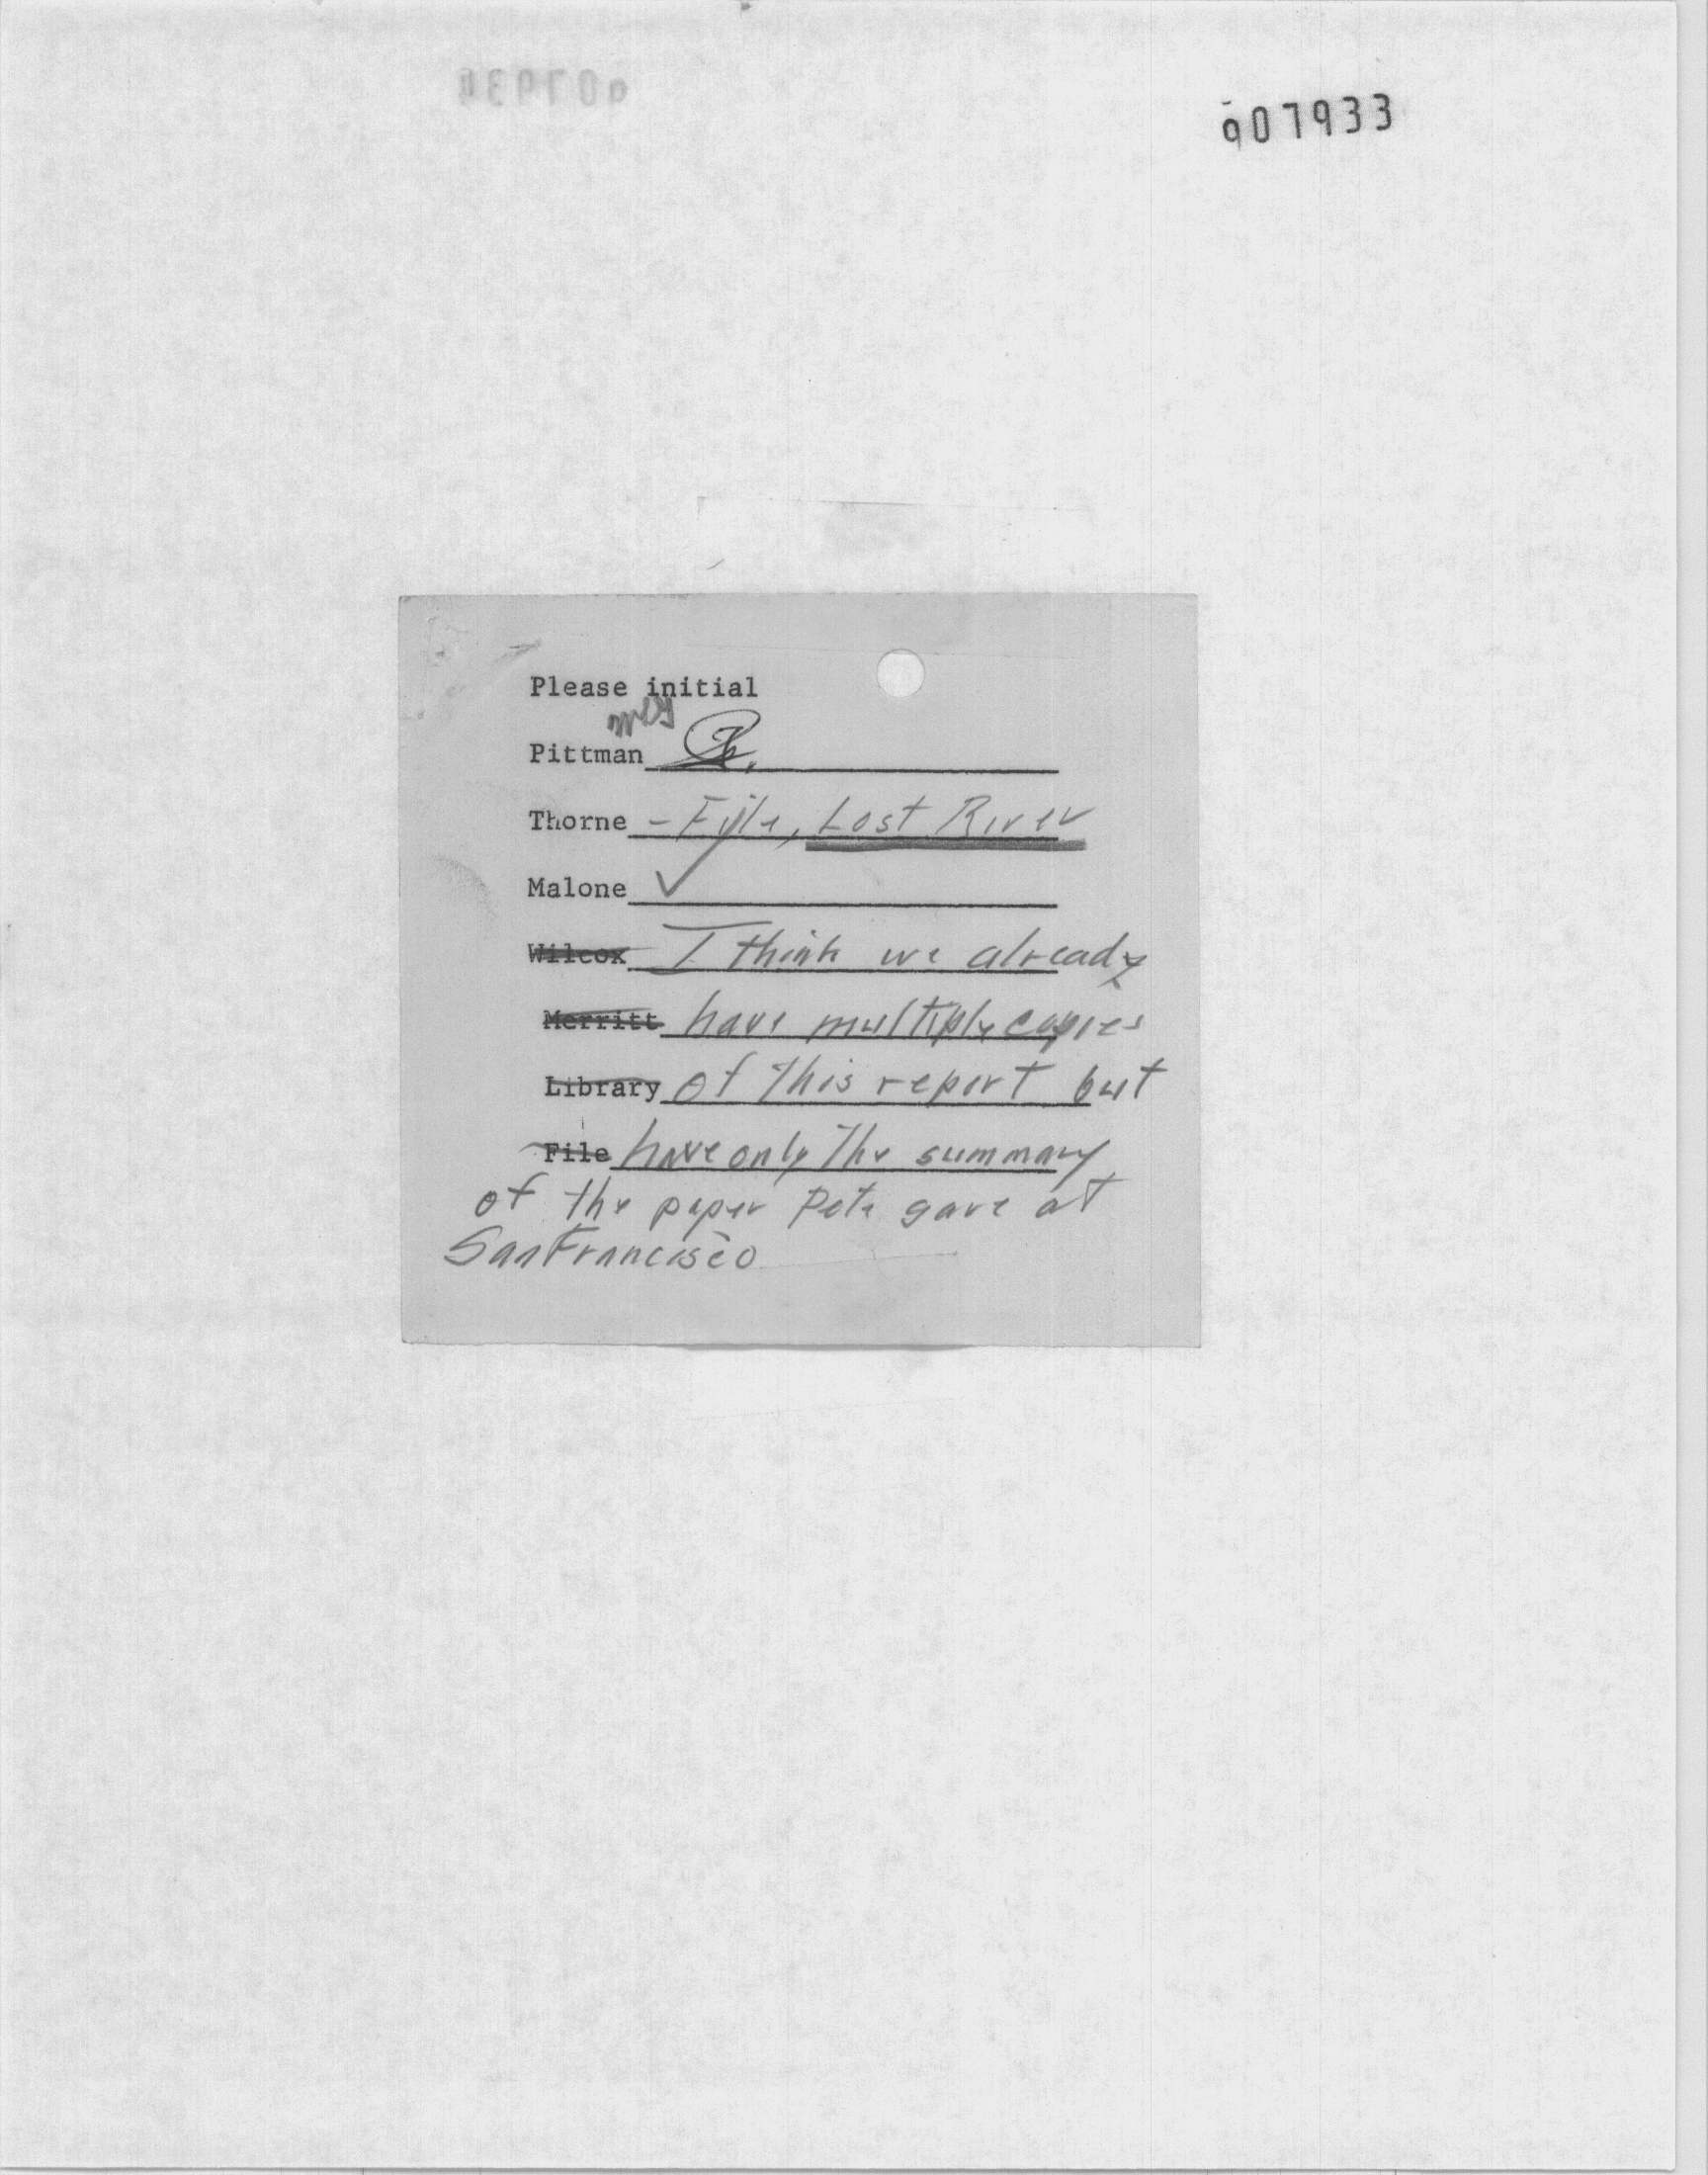 907933
Please initial
Pittman
Thorne - File, Lost River
Malone ✓
Wilcox I think we already
Merritt have multiple copies
Library of this report but
File have only the summary
of the paper Pete gave at
San Francisco